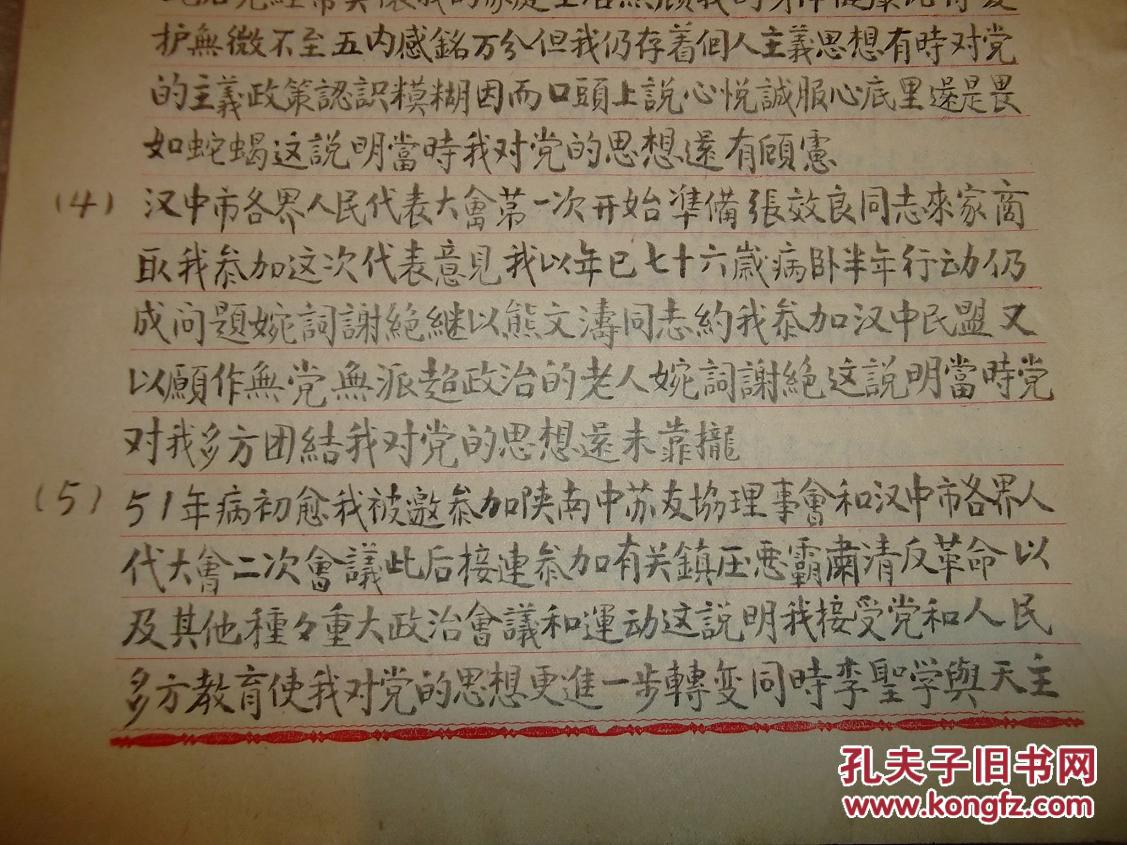 此后党經常關懷我的家庭生活照顧我的身体健康优待爱
护無微不至五内感銘万分但我仍存着個人主義思想有時对党
的主義政策認識糢糊因而口頭上說心悦誠服心底里還是畏
如蛇蝎这説明當時我对党的思想還有顧慮
(4) 汉中市各界人民代表大會第一次开始準備張效良同志來家商
取我参加这次代表意見我以年已七十六歲病卧半年行动仍
成问題婉詞謝絶継以熊文濤同志約我参加汉中民盟又
以願作無党無派超政治的老人婉詞謝絶这説明當時党
对我多方团結我对党的思想還未靠攏
(5) 51年病初愈我被邀参加陕南中苏友協理事會和汉中市各界人
代大會二次會議此后接連参加有关鎮压恶霸肅清反革命以
及其他種々重大政治會議和運动这説明我接受党和人民
多方教育使我对党的思想更進一步轉变同時李聖学與天主
孔夫子旧书网
www.kongfz.com